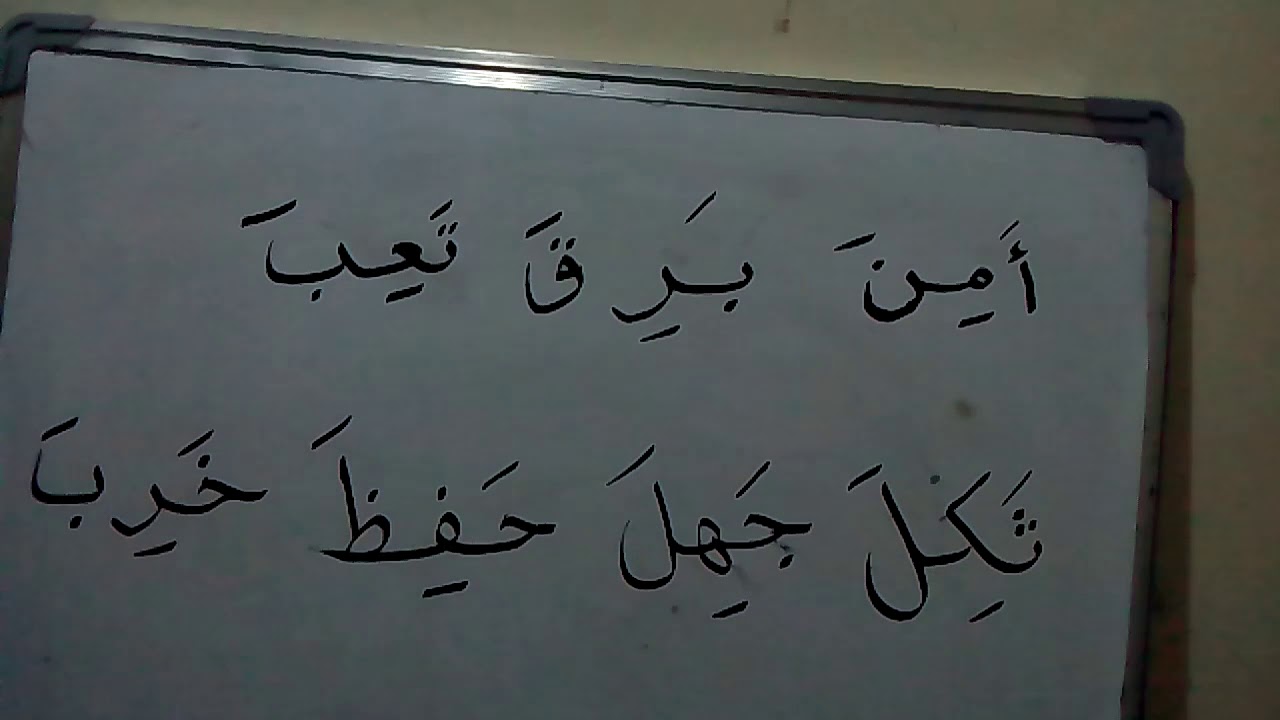 أَمِنَ بَرِقَ تَعِبَ
ثَكِلَ جَهِلَ حَفِظَ خَرِبَ